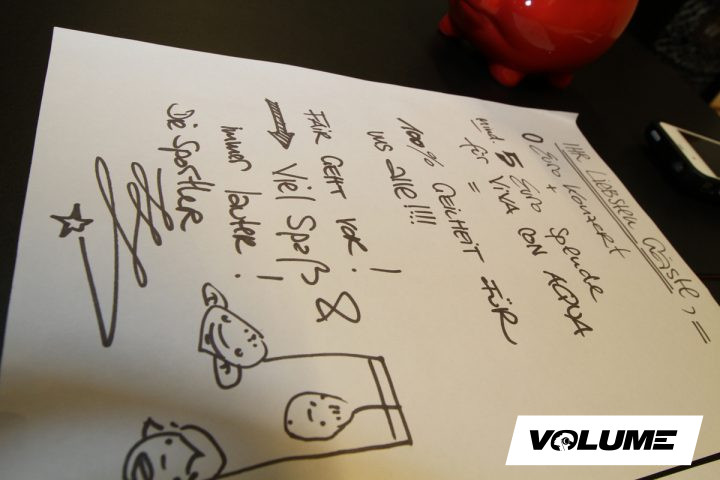 Ihr Liebsten Gäste, =
0 Euro Konzert
+
mind. 5 Euro Spende
für VIVA CON AGUA
=
100% GEILHEIT FÜR
uns alle!!!!
FAIR GEHT VOR!
Viel Spaß &
immer lauter!
Die Sportfur
VOLUME